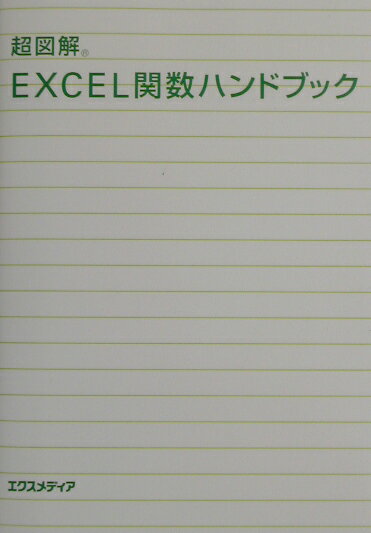 超図解®
EXCEL関数ハンドブック
エクスメディア